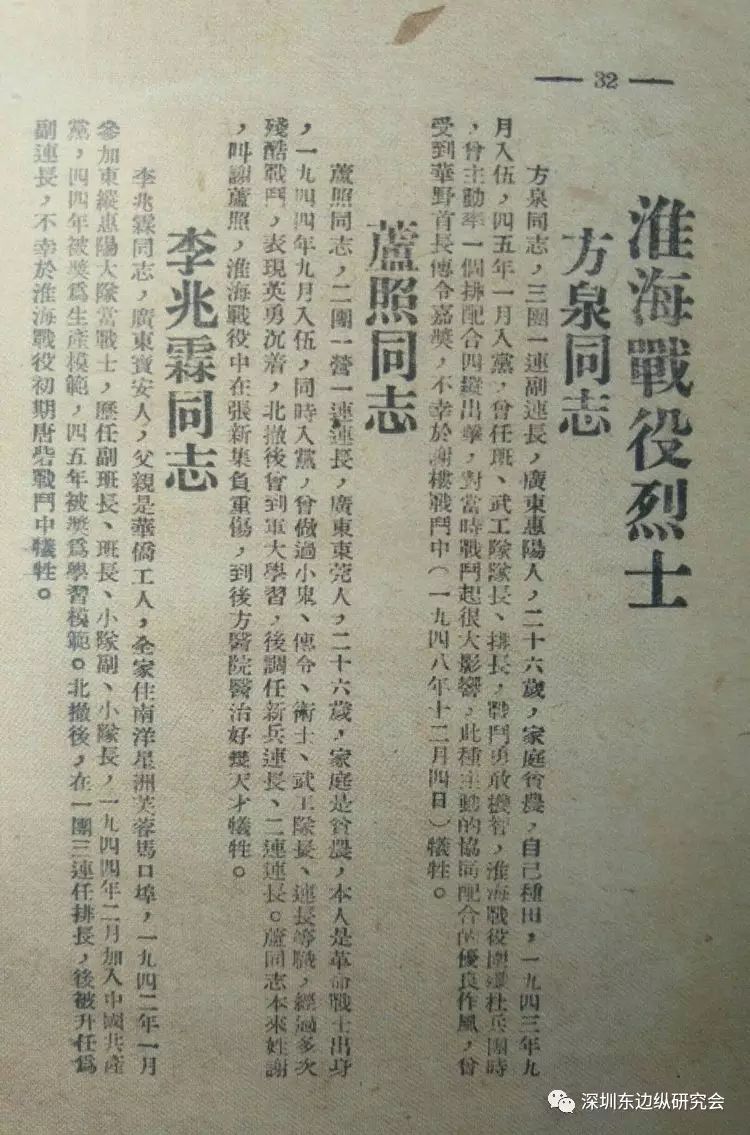 — 32 —
淮海戰役烈士
方泉同志
方泉同志，三團一連副連長，廣東惠陽人，二十六歲，家庭貧農，自己種田，一九四三年九
月入伍，四五年一月入黨，曾任班、武工隊隊長、排長，戰鬥勇敢機智，淮海戰役圍殲杜兵團時
，曾主動率一個排配合四縱出擊，對當時戰鬥起很大影響，此種主動的協同配合的優良作風，曾
受到華野首長傳令嘉獎，不幸於謝樓戰鬥中（一九四八年十二月四日）犧牲。
蘆照同志
蘆照同志，二團一營一連連長，廣東東莞人，二十六歲，家庭是貧農，本人是革命戰士出身
，一九四四年九月入伍，同時入黨，曾做過小鬼、傳令、衛士、武工隊長、連長等職，經過多次
殘酷戰鬥，表現英勇沉着，北撤後曾到軍大學習，後調任新兵連長、二連連長。蘆同志本來姓謝
，叫謝蘆照，淮海戰役中在張新集負重傷，到後方醫院醫治好幾天才犧牲。
李兆霖同志
李兆霖同志，廣東寶安人，父親是華僑工人，全家住南洋星洲芙蓉馬口埠，一九四二年一月
參加東縱惠陽大隊當戰士，歷任副班長、班長、小隊副、小隊長，一九四四年二月加入中國共產
黨，四四年被獎爲生產模範，四五年被獎爲學習模範。北撤後，在一團三連任排長，後被升任爲
副連長，不幸於淮海戰役初期唐砦戰鬥中犧牲。
深圳东边纵研究会